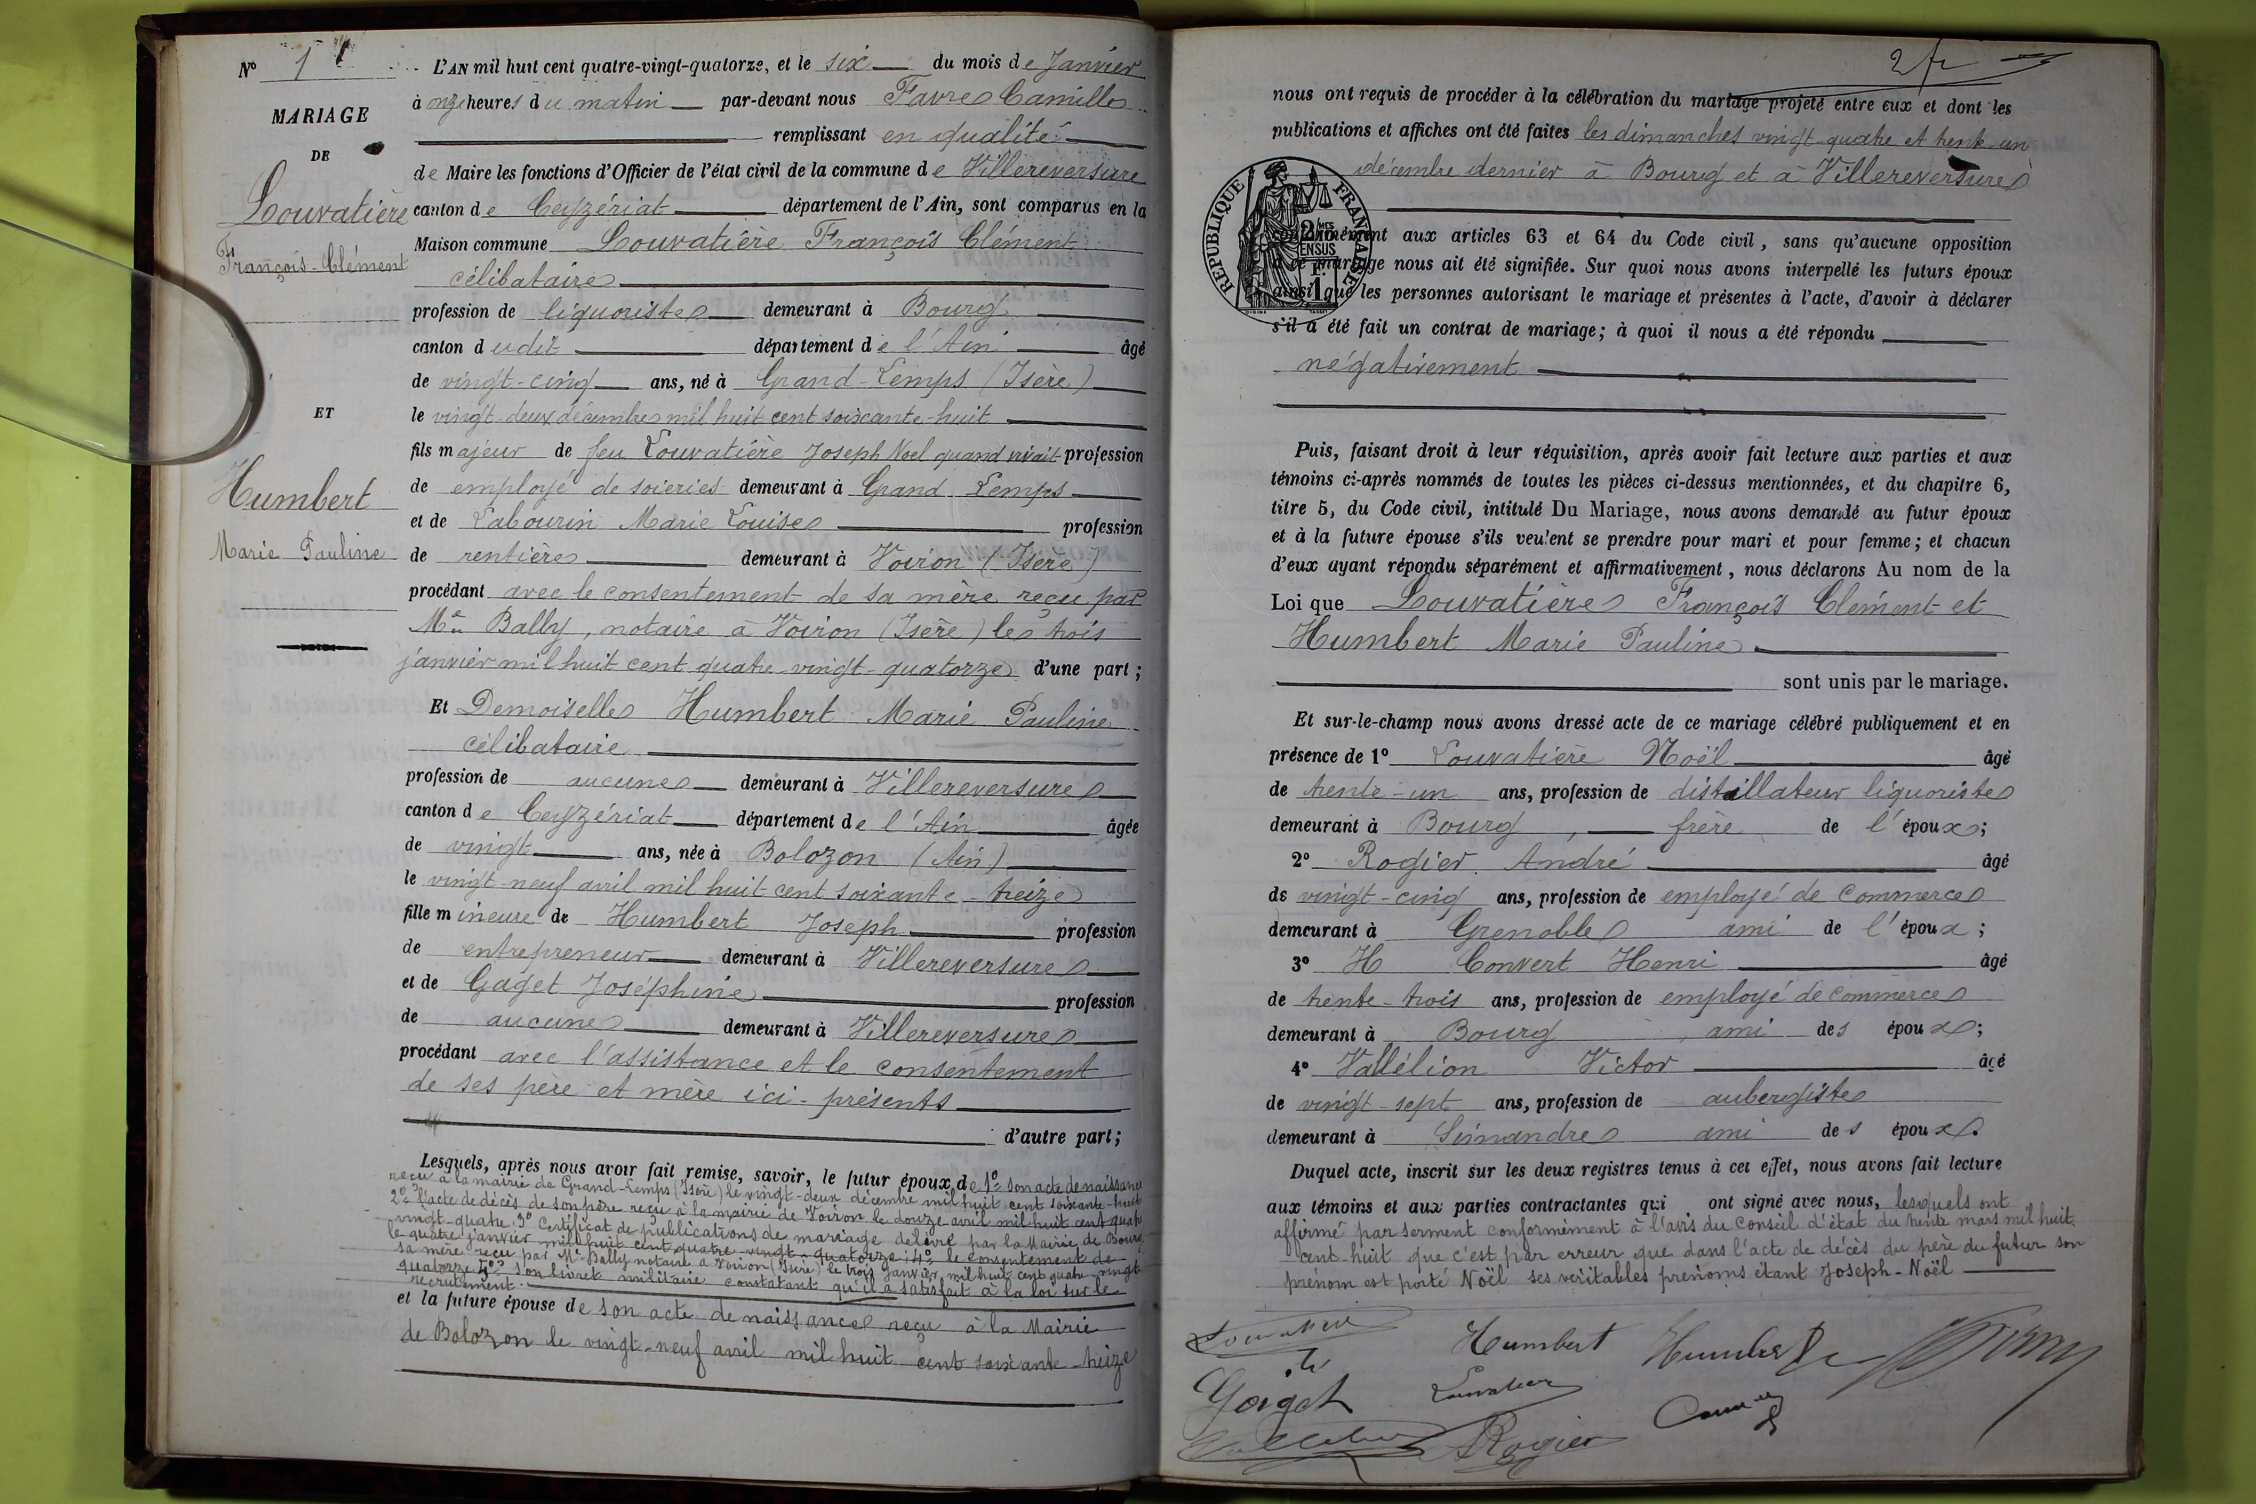 No 1
MARIAGE
DE
Louvatière
François-Clément
ET
Humbert
Marie Pauline
L'AN mil huit cent quatre-vingt-quatorze, et le six du mois de Janvier
à onze heures du matin par-devant nous Favre Camille
remplissant en qualité
de Maire les fonctions d'Officier de l'état civil de la commune de Villereversure
canton de Ceyzériat département de l'Ain, sont comparus en la
Maison commune Louvatière François Clément
célibataire
profession de liquoriste demeurant à Bourg
canton dudit département de l'Ain âgé
de vingt-cinq ans, né à Grand-Lemps (Isère)
le vingt-deux décembre mil huit cent soixante-huit
fils majeur de feu Louvatière Joseph Noel quand vivait profession
de employé de soieries demeurant à Grand Lemps
et de Labourin Marie Louise profession
de rentière demeurant à Voiron (Isère)
procédant avec le consentement de sa mère reçu par
Me Bally, notaire à Voiron (Isère) le trois
janvier mil huit cent quatre vingt-quatorze d'une part;
Et Demoiselle Humbert Marie Pauline
célibataire
profession de aucune demeurant à Villereversure
canton de Ceyzériat département de l'Ain âgée
de vingt ans, née à Bolozon (Ain)
le vingt-neuf avril mil huit cent soixante-treize
fille mineure de Humbert Joseph profession
de entrepreneur demeurant à Villereversure
et de Gaget Joséphine profession
de aucune demeurant à Villereversure
procédant avec l'assistance et le consentement
de ses père et mère ici-présents
d'autre part;
Lesquels, après nous avoir fait remise, savoir, le futur époux de 1º son acte de naissance
reçu à la mairie de Grand-Lemps (Isère) le vingt-deux décembre mil huit cent soixante-huit
2º l'acte de décès de son père reçu à la mairie de Voiron le douze avril mil huit cent quatre
vingt-quatre 3º Certificat de publications de mariage délivré par la Mairie de Bourg
le quatre janvier mil huit cent quatre-vingt-quatorze; 4º le consentement de
sa mère reçu par Me Bally notaire à Voiron (Isère) le trois Janvier mil huit cent quatre-vingt
quatorze 5º son livret militaire constatant qu'il a satisfait à la loi sur le
recrutement.
et la future épouse de son acte de naissance reçu à la Mairie
de Bolozon le vingt-neuf avril mil huit cent soixante-treize
nous ont requis de procéder à la célébration du mariage projeté entre eux et dont les
publications et affiches ont été faites les dimanches vingt quatre et trente un
décembre dernier à Bourg et à Villereversure
REPUBLIQUE FRANÇAISE
conformément aux articles 63 et 64 du Code civil, sans qu'aucune opposition
à ce mariage nous ait été signifiée. Sur quoi nous avons interpellé les futurs époux
ainsi que les personnes autorisant le mariage et présentes à l'acte, d'avoir à déclarer
s'il a été fait un contrat de mariage; à quoi il nous a été répondu
négativement
Puis, faisant droit à leur réquisition, après avoir fait lecture aux parties et aux
témoins ci-après nommés de toutes les pièces ci-dessus mentionnées, et du chapitre 6,
titre 5, du Code civil, intitulé Du Mariage, nous avons demandé au futur époux
et à la future épouse s'ils veulent se prendre pour mari et pour femme; et chacun
d'eux ayant répondu séparément et affirmativement, nous déclarons Au nom de la
Loi que Louvatière François Clément et
Humbert Marie Pauline
sont unis par le mariage.
Et sur-le-champ nous avons dressé acte de ce mariage célébré publiquement et en
présence de 1º Louvatière Noël âgé
de trente-un ans, profession de distillateur liquoriste
demeurant à Bourg, frère de l'époux;
2º Rogier André âgé
de vingt-cinq ans, profession de employé de commerce
demeurant à Grenoble ami de l'époux;
3º H Convert Henri âgé
de trente-trois ans, profession de employé de commerce
demeurant à Bourg, ami des époux;
4º Vallélion Victor âgé
de vingt-sept ans, profession de aubergiste
demeurant à Simandre ami des époux.
Duquel acte, inscrit sur les deux registres tenus à cet effet, nous avons fait lecture
aux témoins et aux parties contractantes qui ont signé avec nous, lesquels ont
affirmé par serment conformément à l'avis du Conseil d'état du trente mars mil huit
cent huit que c'est par erreur que dans l'acte de décès du père du futur son
prénom est porté Noël ses véritables prénoms étant Joseph-Noël
Humbert Humbert
Louvatière
Rogier